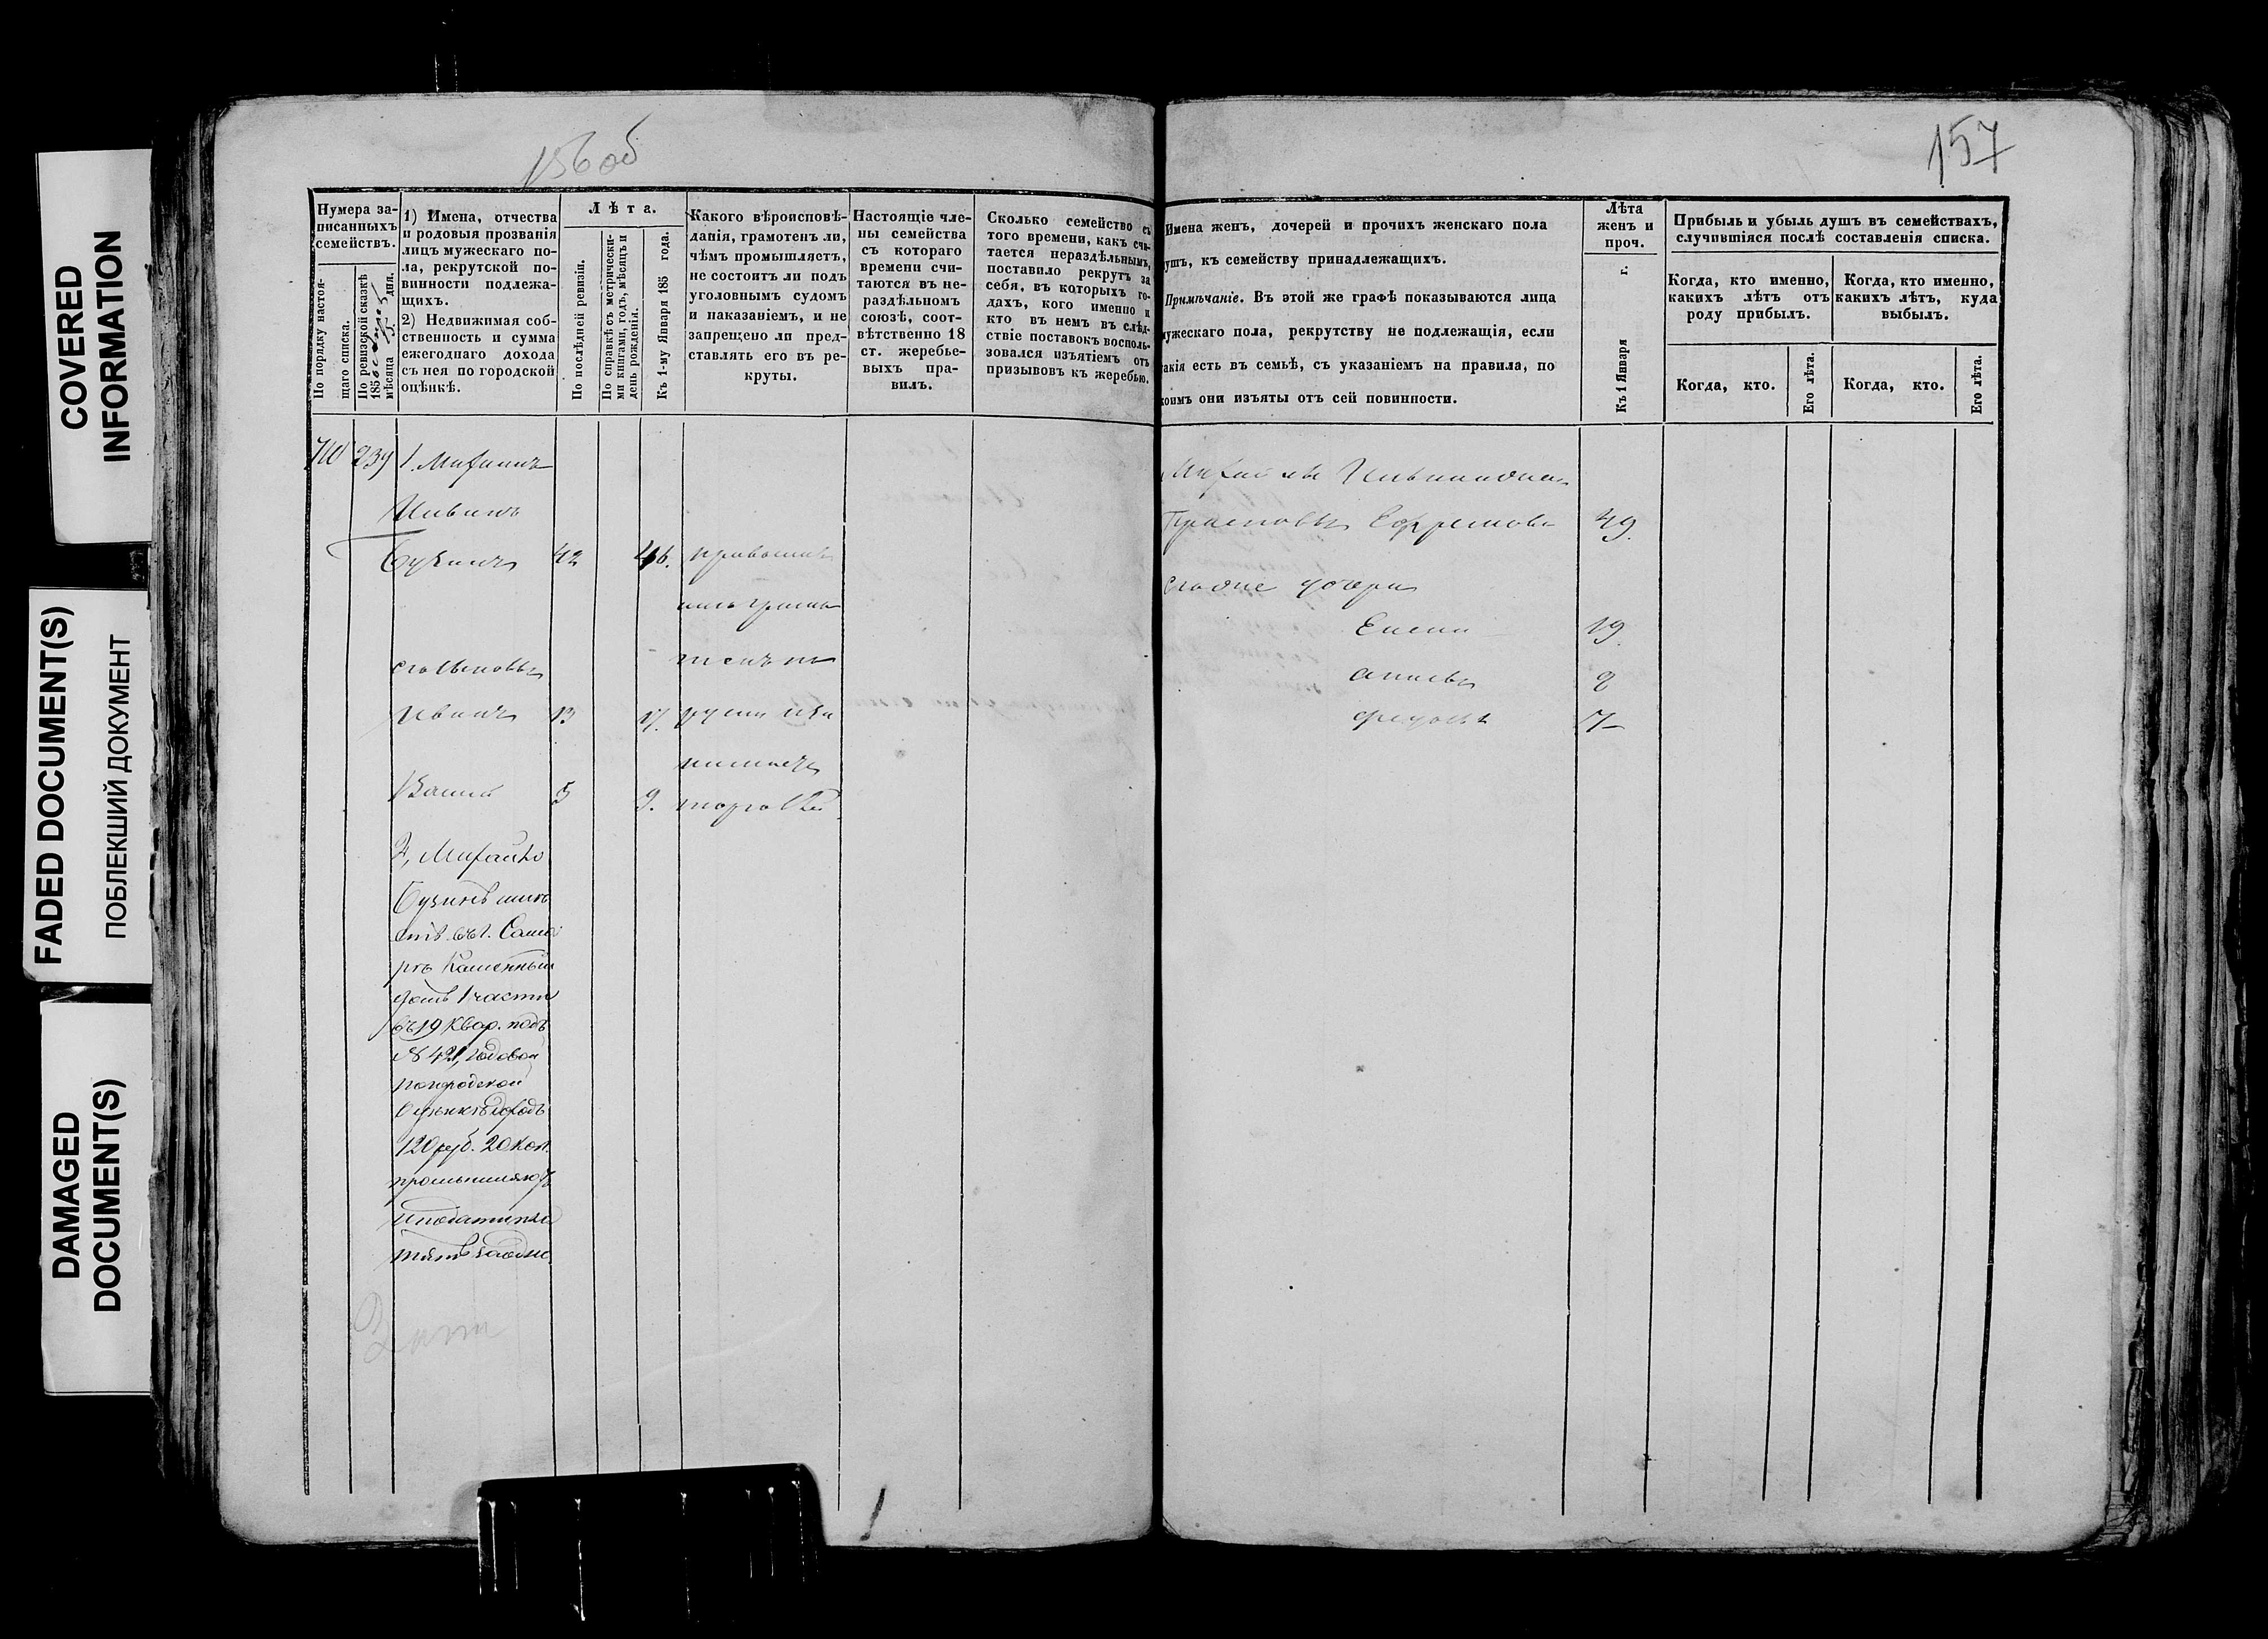 COVERED
INFORMATION
FADED DOCUMENT(S)
ПОБЛЕКШИЙ ДОКУМЕНТ
DAMAGED
DOCUMENT(S)
156 об
157
Нумера за-
писанныхъ
семействъ.
По порядку настоя-
щаго списка.
По ревизской сказкѣ
185 мѣсяца дня.
1) Имена, отчества
и родовыя прозванія
лицъ мужескаго по-
ла, рекрутской по-
винности подлежа-
щихъ.
2) Недвижимая соб-
ственность и сумма
ежегоднаго дохода
съ нея по городской
оцѣнкѣ.
Лѣта.
По послѣдней ревизіи.
По справкѣ съ метрически-
ми книгами, годъ, мѣсяцъ и
день рожденія.
Къ 1-му Января 185 года.
Какого вѣроисповѣ-
данія, грамотенъ ли,
чѣмъ промышляетъ,
не состоитъ ли подъ
уголовнымъ судомъ
и наказаніемъ, и не
запрещено ли пред-
ставлять его въ ре-
круты.
Настоящіе чле-
ны семейства
съ котораго
времени счи-
таются въ не-
раздѣльномъ
союзѣ, соот-
вѣтственно 18
ст. жеребье-
выхъ пра-
вилъ.
Сколько семейство съ
того времени, какъ счи-
тается нераздѣльнымъ,
поставило рекрутъ за
себя, въ которыхъ го-
дахъ, кого именно и
кто въ немъ въ слѣд-
ствіе поставокъ восполь-
зовался изъятіемъ отъ
призывовъ къ жеребью.
Имена женъ, дочерей и прочихъ женскаго пола
душъ, къ семейству принадлежащихъ.
Примѣчаніе. Въ этой же графѣ показываются лица
мужескаго пола, рекрутству не подлежащія, если
такія есть въ семьѣ, съ указаніемъ на правила, по
коимъ они изъяты отъ сей повинности.
Лѣта
женъ и
проч.
Къ 1 Января г.
Прибыль и убыль душъ въ семействахъ,
случившіяся послѣ составленія списка.
Когда, кто именно,
какихъ лѣтъ отъ
роду прибылъ.
Когда, кто именно,
какихъ лѣтъ, куда
выбылъ.
Когда, кто.
Его лѣта.
Когда, кто.
Его лѣта.
1. Михаилъ
Ивановъ
Бузинъ 42 46. православ
грамо
его сыновья
Иванъ 13 17.
Василій 5 9. торговлей
Михаила
Ефремова 49.
его же дочери
Елена 19.
7
2, Михайло
Бузинъ имѣ
етъ въ г. Сама
рѣ каменный
домъ 1 части
въ 19 квар. подъ
№ 421, годовой
по городской
оцѣнкѣ доходъ
120 руб. 20 коп.
промышляютъ
и подати пла
тятъ заодно.